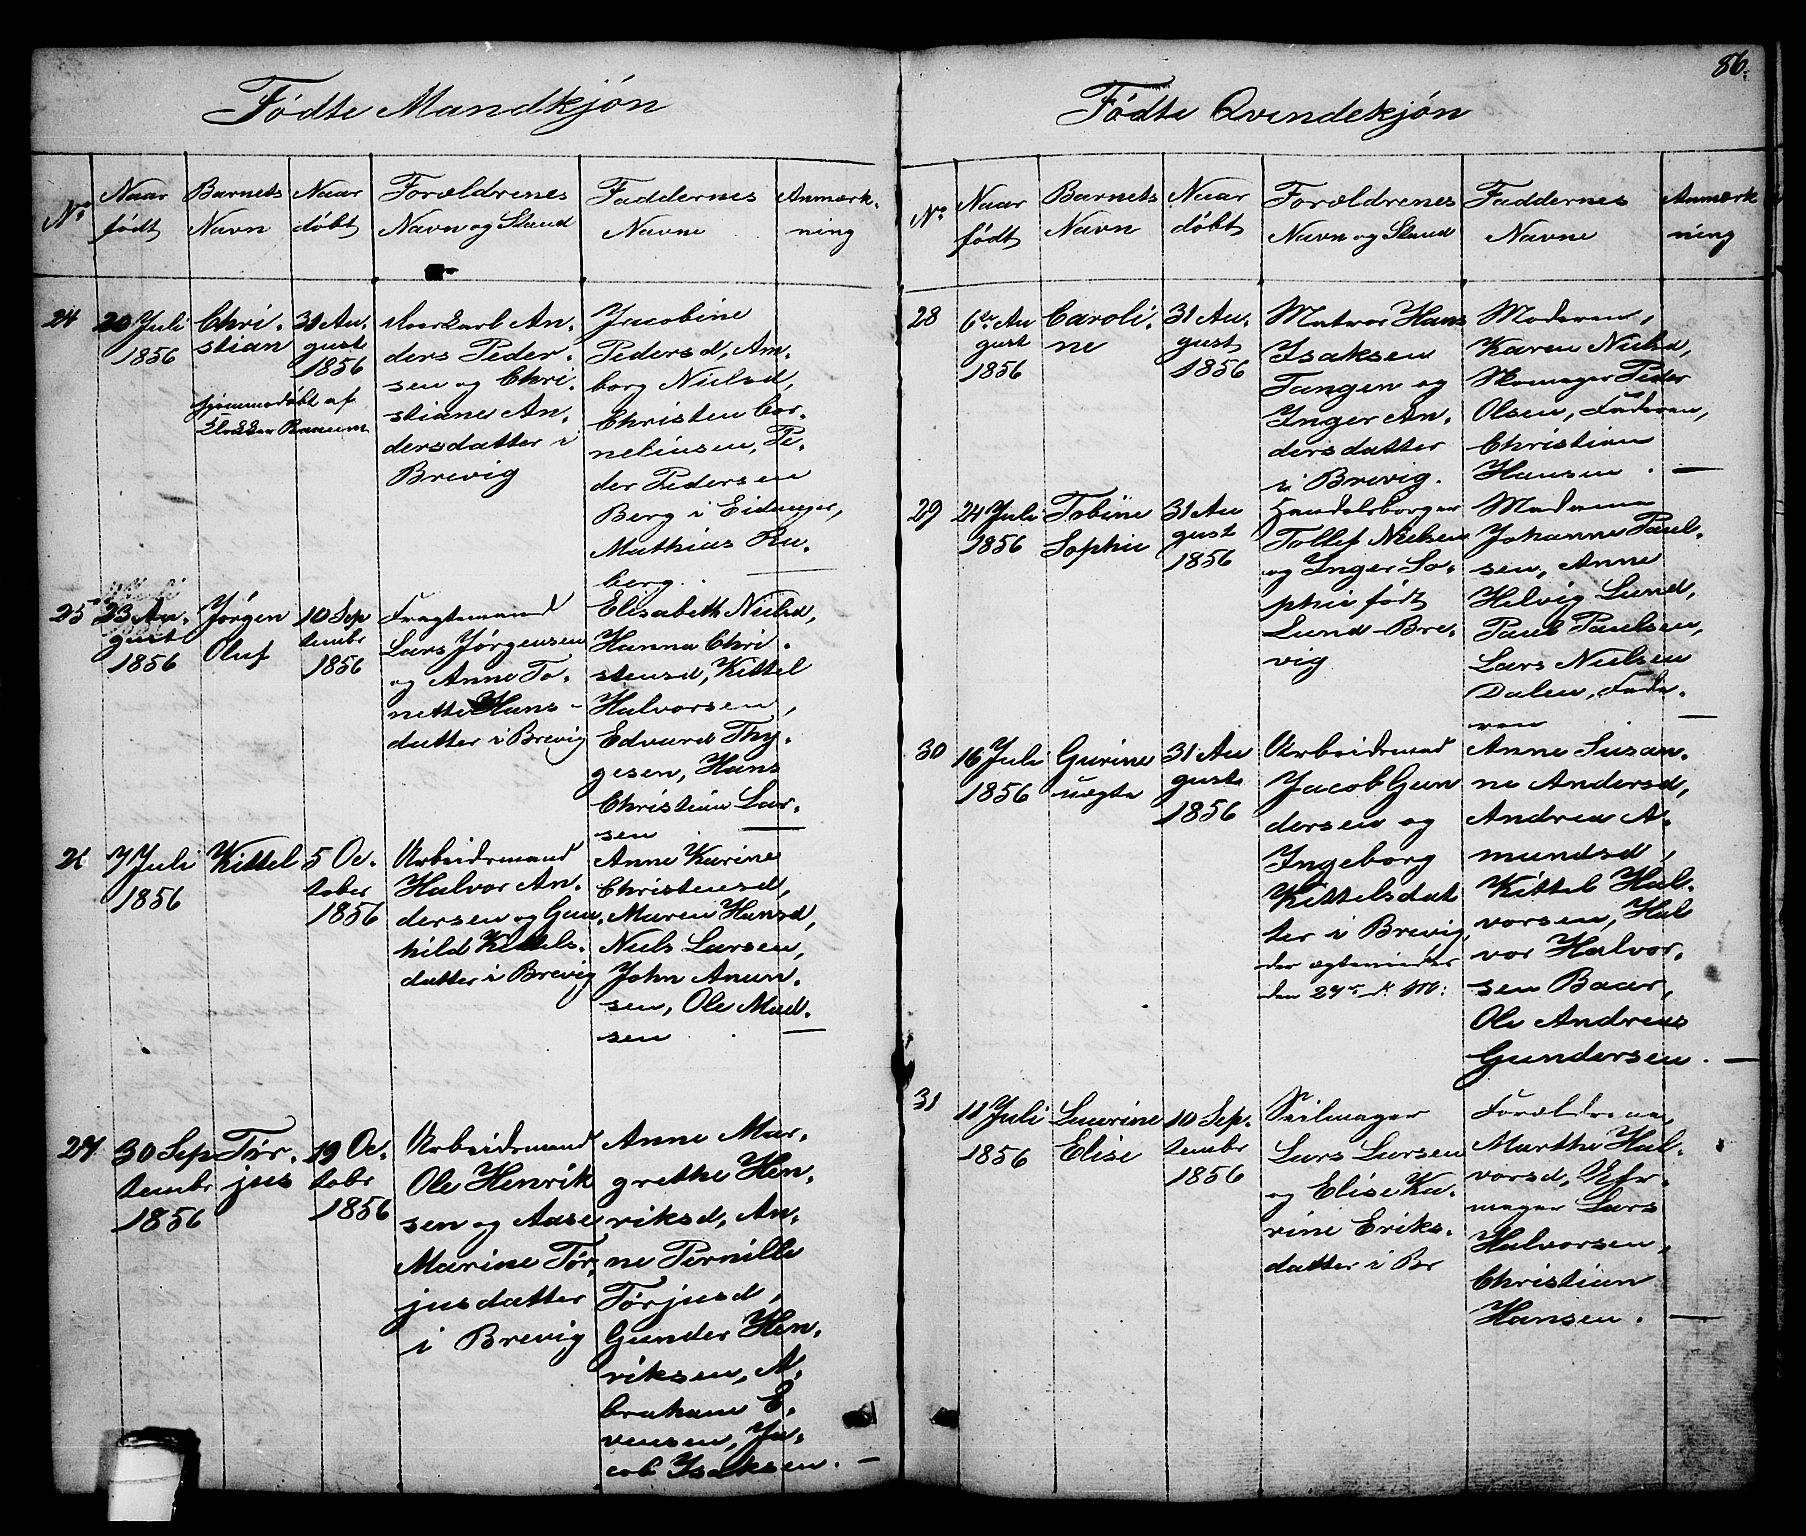 86.
Fødte Mandkjøn
No
Naar født
Barnets Navn
Naar døbt
Forældrenes Navn og Stand
Faddernes Navne
Anmærkning
24
20 Juli
1856
Chri-
stian
hjemmedøbt af
Klokker
31 Au
gust
1856
An-
ders Peder-
sen og Chri-
stiane An-
dersdatter i
Brevig
Jacobine
Pedersd, Am-
borg Nielsd,
Christen Cor-
neliusen, Pe-
der Pedersen
Berg i Eidanger,
Mathias Ru-
berg.
25
23 Au-
gust
1856
Jørgen
Oluf
10 Sep
tembr
1856
Fragtemand
Lars Jørgensen
og Anne To-
nette Hans-
datter i Brevig
Elisabeth Nielsd,
Hanna Chri-
stensd, Kittel
Halvorsen,
Edvard Thy-
gesen, Hans
Christian Lar-
sen
26
7 Juli
1856
Kittel
5 Oc-
tober
1856
Arbeidsmand
Halvor An-
dersen og Gun-
hild Kittels-
datter i Brevig
Anne Karine
Christensd,
Maren Hansd,
Niels Larsen,
John Anun-
sen, Ole Mad-
sen
27
30 Sep
tembr
1856
Tør-
jus
19 Oc-
tobr
1856
Arbeidsmand
Ole Henrik
sen og Aase
Marine Tør-
jusdatter
i Brevig
Anne Mar-
grethe Hen-
riksd, An-
ne Pernille
Tørjusd,
Gunder Hen-
riksen, A-
braham E-
vensen, Ja-
cob Isaksen.
Fødte Qvindekjøn
No
Naar født
Barnets Navn
Naar døbt
Forældrenes Navn og Stand
Faddernes Navne
Anmærkning
28
6te Au
gust
1856
Caroli-
ne
31 Au-
gust
1856
Matros Hans
Isaksen
Tangen og
Inger An-
dersdatter
i Brevig.
Moderen,
Karen Nielsd,
Skomager Peder
Olsen, Faderen,
Christian
Hansen
29
24 Juli
1856
Tobine
Sophie
31 Au
gust
1856
Handelsborger
Tollef Nielsen
og Inger So-
phie født
Lund Bre-
vig
Madame
Johanne Paul-
sen, Anne
Helvig Lund,
Paul Paulsen,
Lars Nielsen
Dalen, Fade-
ren
30
16 Juli
1856
Gurine
uægte
31 Au
gust
1856
Arbeidsmand
Jacob Gun
dersen og
Ingeborg
Kittelsdat
ter i Brevig,
der ægtevieder
den 27de d. M:
Anne Susan-
ne Andersd,
Andrea A-
mundsd,
Kittel Hal-
vorsen, Hal
vor Halvor-
sen Baar,
Ole Andreas
Gundersen.
31
11 Juli
1856
Laurine
Elise
10 Sep-
tembr
1856
Seilmager
Lars Larsen
og Elise Ka-
rine Eriks-
datter i Br
Forældrene,
Marthe Hal-
vorsd, Uhr-
mager Lars
Halvorsen,
Christian
Hansen.